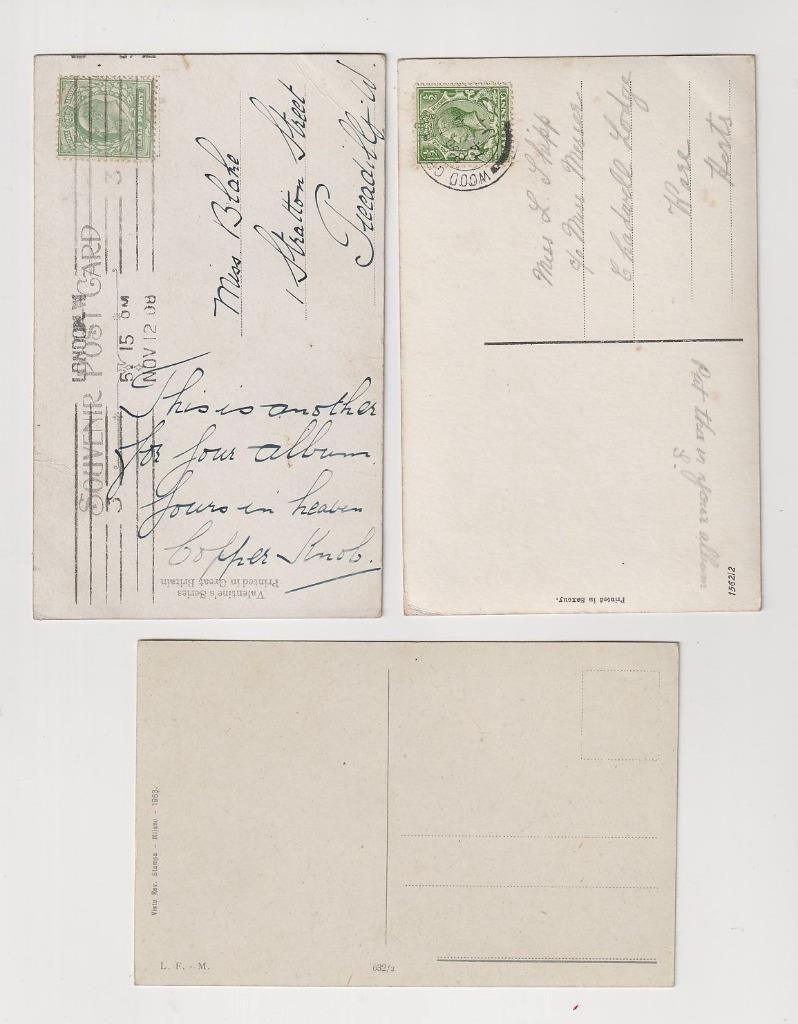 SOUVENIR POST CARD
LONDON. W
5. 15 PM
NOV 12 08
3
3
Miss Blake
1 Stratton Street
Piccadilly W.
This is another
for your album.
Yours in heaven
Copper Knob.
Valentine's Series
Printed in Great Britain
WOOD G
Miss L. Shipp
c/o Miss Messer
Chadwell Lodge
Ware
Herts
Put this in your album
Printed in Saxony.
156212
Visto Rev. Stampa - Milano - 1968.
L. F. - M.
632/2